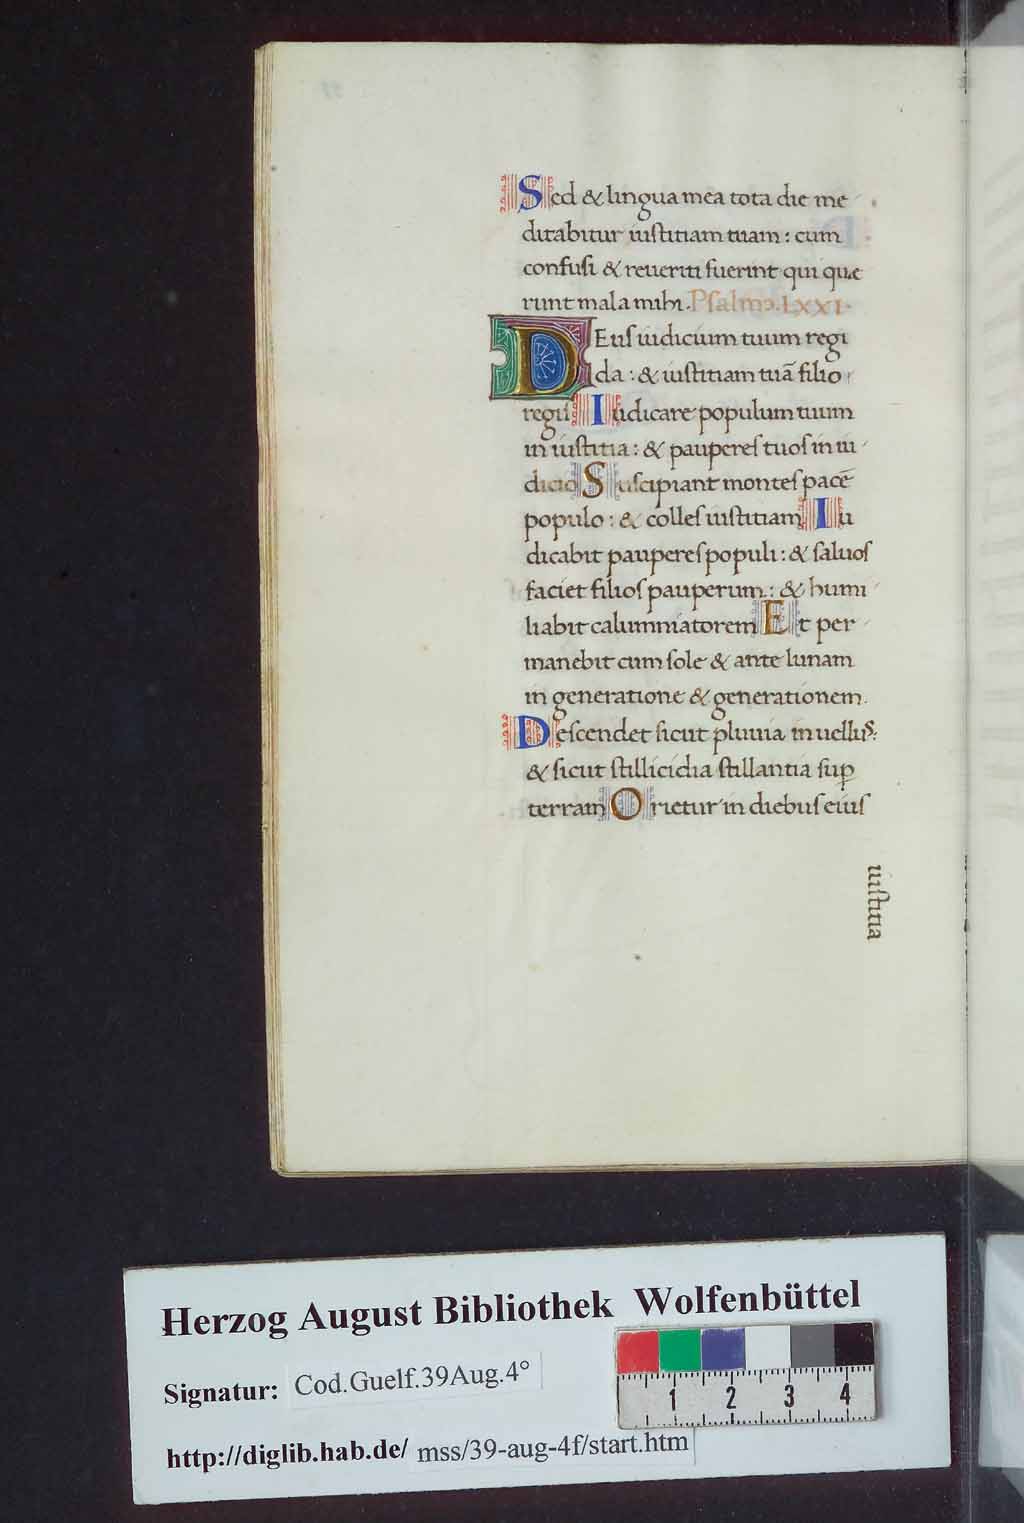 Sed & lingua mea tota die me
ditabitur iustitiam tuam : cum
confusi & reueriti fuerint qui quae
runt mala mihi. Psalmo. LXXI.
DEus iudicium tuum regi
da : & iustitiam tuā filio
regis Iudicare populum tuum
in iustitia : & pauperes tuos in iu
dicio Suscipiant montes pacē
populo : & colles iustitiam Iu
dicabit pauperes populi : & saluos
faciet filios pauperum : & humi
liabit calumniatorem Et per
manebit cum sole & ante lunam
in generatione & generationem.
Descendet sicut pluuia in uellus:
& sicut stillicidia stillantia sup
terram Orietur in diebus eius
iustitia
Herzog August Bibliothek Wolfenbüttel
Signatur: Cod.Guelf.39Aug.4°
http://diglib.hab.de/ mss/39-aug-4f/start.htm
1 2 3 4